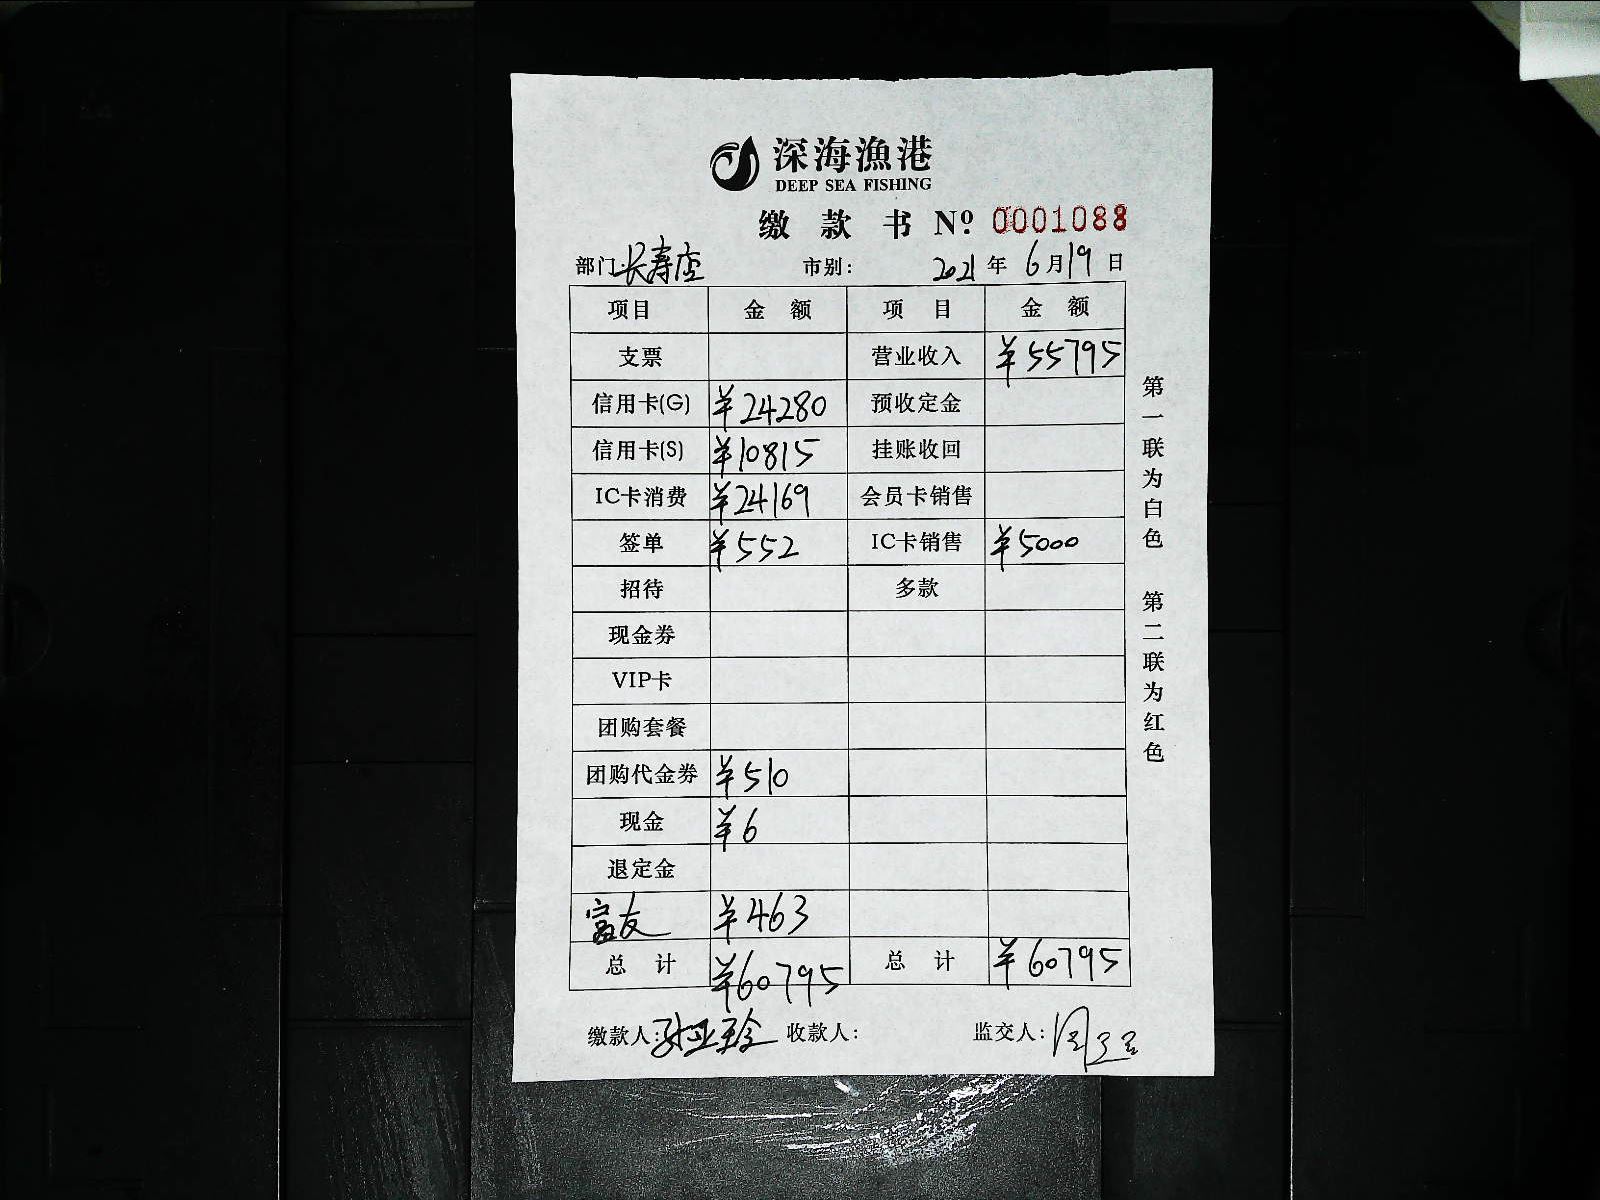 深海漁港
DEEP SEA FISHING
缴 款 书 Nº: 0001088
部门:长寿店 市别: 2021 年 6 月 19 日
项目 金 额 项 目 金 额
支票 营业收入 ¥55795
信用卡(G) ¥24280 预收定金
信用卡(S) ¥10815 挂账收回
IC卡消费 ¥24169 会员卡销售
签单 ¥552 IC卡销售 ¥5000
招待 多款
现金券
VIP卡
团购套餐
团购代金券 ¥510
现金 ¥6
退定金
富友 ¥463
总 计 ¥60795 总 计 ¥60795
缴款人: 收款人: 监交人:
第一联为白色 第二联为红色